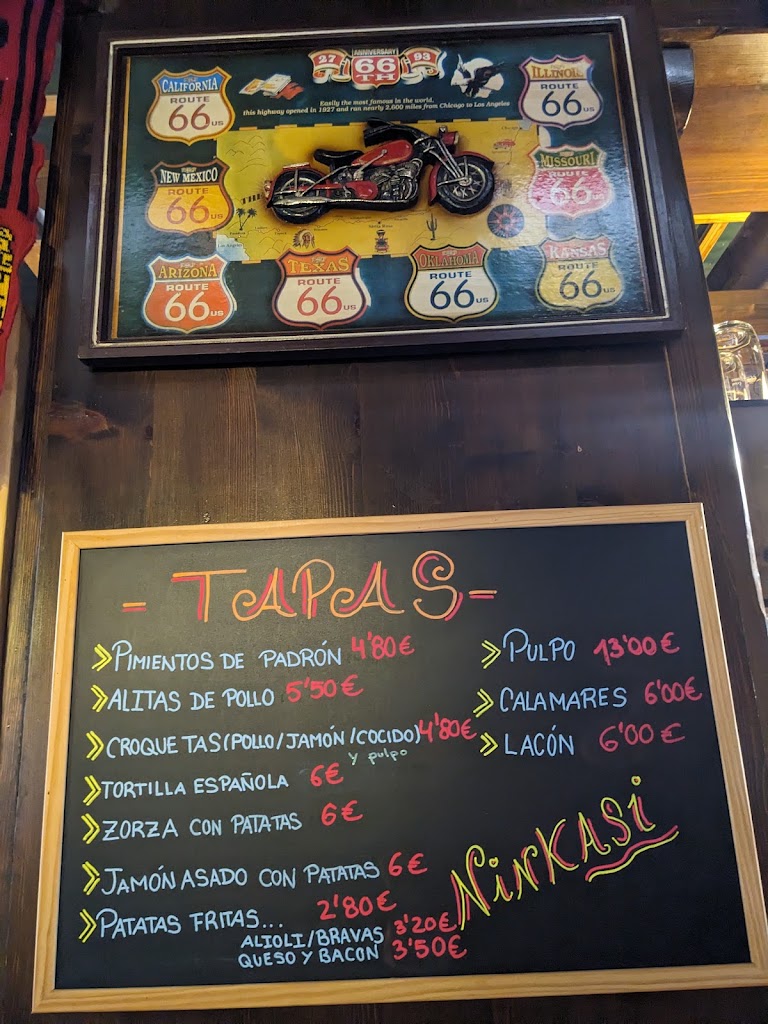 27 ANNIVERSARY 93
66
TH
Easily the most famous in the world,
this highway opened in 1927 and ran nearly 2,600 miles from Chicago to Los Angeles
CALIFORNIA
ROUTE
66 US
ILLINOIS
ROUTE
66 US
NEW MEXICO
ROUTE
66 US
MISSOURI
ROUTE
66 US
ARIZONA
ROUTE
66 US
TEXAS
ROUTE
66 US
OKLAHOMA
ROUTE
66 US
KANSAS
ROUTE
66 US
- TAPAS -
PIMIENTOS DE PADRÓN 4'80€
ALITAS DE POLLO 5'50€
CROQUETAS(POLLO/JAMÓN/COCIDO) 4'80€
y pulpo
TORTILLA ESPAÑOLA 6€
ZORZA CON PATATAS 6€
JAMÓN ASADO CON PATATAS 6€
PATATAS FRITAS... 2'80€
ALIOLI/BRAVAS 3'20€
QUESO Y BACON 3'50€
PULPO 13'00€
CALAMARES 6'00€
LACÓN 6'00€
NINKASI